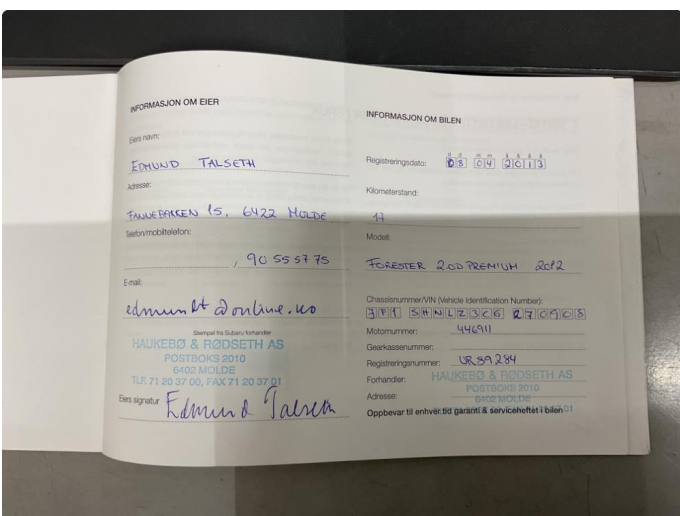 INFORMASJON OM EIER
Eiers navn:
EDMUND TALSETH
Adresse:
FANNEBAKKEN 15, 6422 MOLDE
Telefon/mobiltelefon:
, 90 55 57 75
E-mail:
edmundt@online.no
Stempel fra Subaru forhandler
HAUKEBØ & RØDSETH AS
POSTBOKS 2010
6402 MOLDE
TLF. 71 20 37 00, FAX 71 20 37 01
Eiers signatur Edmund Talseth
INFORMASJON OM BILEN
Registreringsdato: 08 04 2013
Kilometerstand:
17
Modell:
FORESTER 2.0D PREMIUM 2012
Chassisnummer/VIN (Vehicle Identification Number):
JF1 SHNLZ3CG 270908
Motornummer: 446911
Gearkassenummer:
Registreringsnummer: UR89284
Forhandler: HAUKEBØ & RØDSETH AS
POSTBOKS 2010
Adresse: 6402 MOLDE
Oppbevar til enhver tid garanti & serviceheftet i bilen